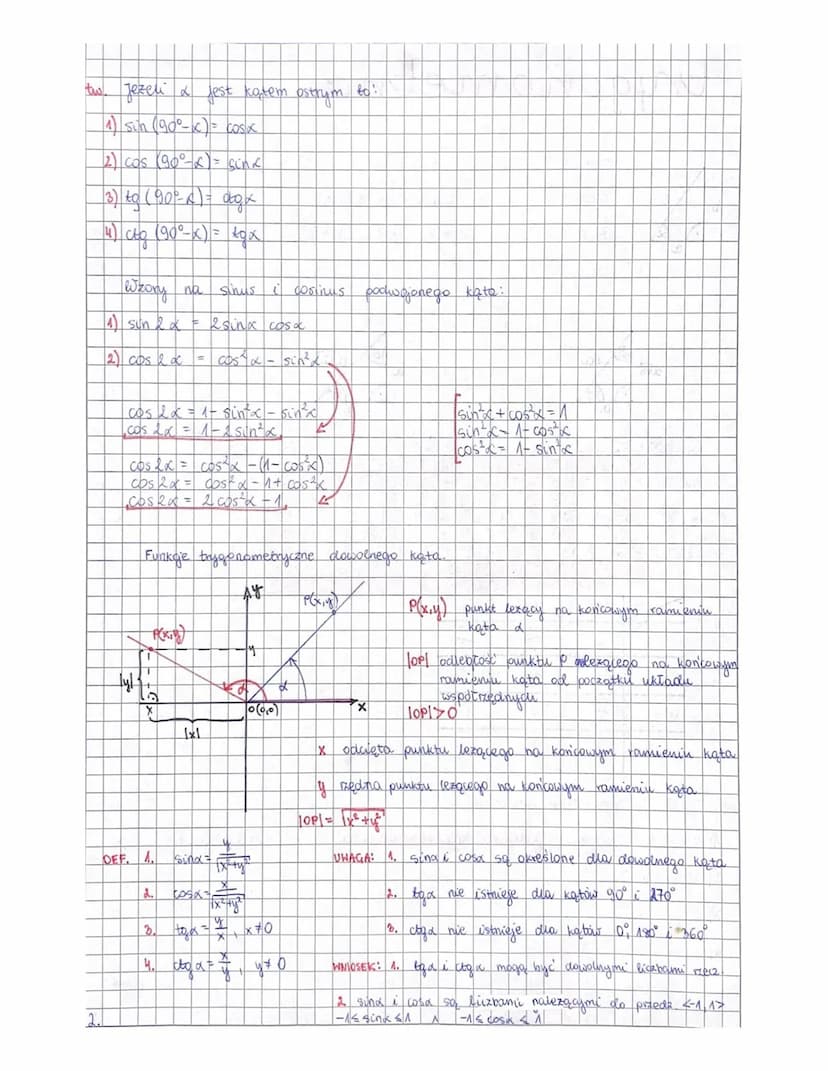 tw. Jeżeli α jest kątem ostrym to:
1) sin (90°-α)= cosα
2) cos (90°-α)= sinα
3) tg (90°-α)= ctgα
4) ctg (90°-α)= tgα
Wzory na sinus i cosinus podwojonego kąta:
1) sin 2α = 2sinα cosα
2) cos 2α = cos²α - sin²α
cos 2α = 1- sin²α - sin²α
cos 2α = 1-2sin²α
cos 2α = cos²α -(1-cos²α)
cos 2α = cos²α -1+ cos²α
cos 2α = 2cos²α -1
sin²α + cos²α = 1
sin²α = 1-cos²α
cos²α = 1- sin²α
Funkcje trygonometryczne dowolnego kąta.
y
P(x,y)
P(x,y)
y
|y|
α
α
x
0(0,0)
x
|x|
P(x,y) punkt leżący na końcowym ramieniu
kąta α
|OP| odległość punktu P należącego na końcowym
ramieniu kąta od początku układu
współrzędnych
|OP|>0
x odcięta punktu leżącego na końcowym ramieniu kąta
y rzędna punktu leżącego na końcowym ramieniu kąta
|OP| = √x²+y²
DEF. 1. sinα = y/√x²+y²
2. cosα = x/√x²+y²
3. tgα = y/x , x≠0
4. ctgα = x/y , y≠0
UWAGA: 1. sinα i cosα są określone dla dowolnego kąta
2. tgα nie istnieje dla kątów 90° i 270°
3. ctgα nie istnieje dla kątów 0°, 180° i 360°
WNIOSEK: 1. tgα i ctgα mogą być dowolnymi liczbami rzecz.
2. sinα i cosα są liczbami należącymi do przedz. <-1,1>
-1≤ sinα ≤1 ∧ -1≤ cosα ≤ 1
2.